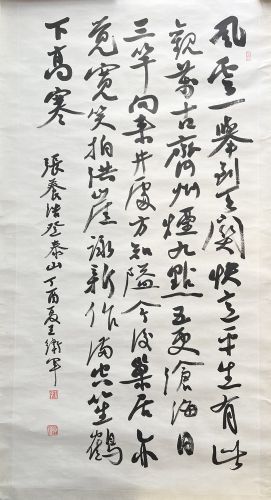 風雲一舉到天關快意平生有此
觀萬古齊州煙九點五更滄海日
三竿向來井處方知隘今後巢居亦
覺寬笑拍洪崖詠新作滿空笙鶴
下高寒
張養浩登泰山丁酉夏王衛軍